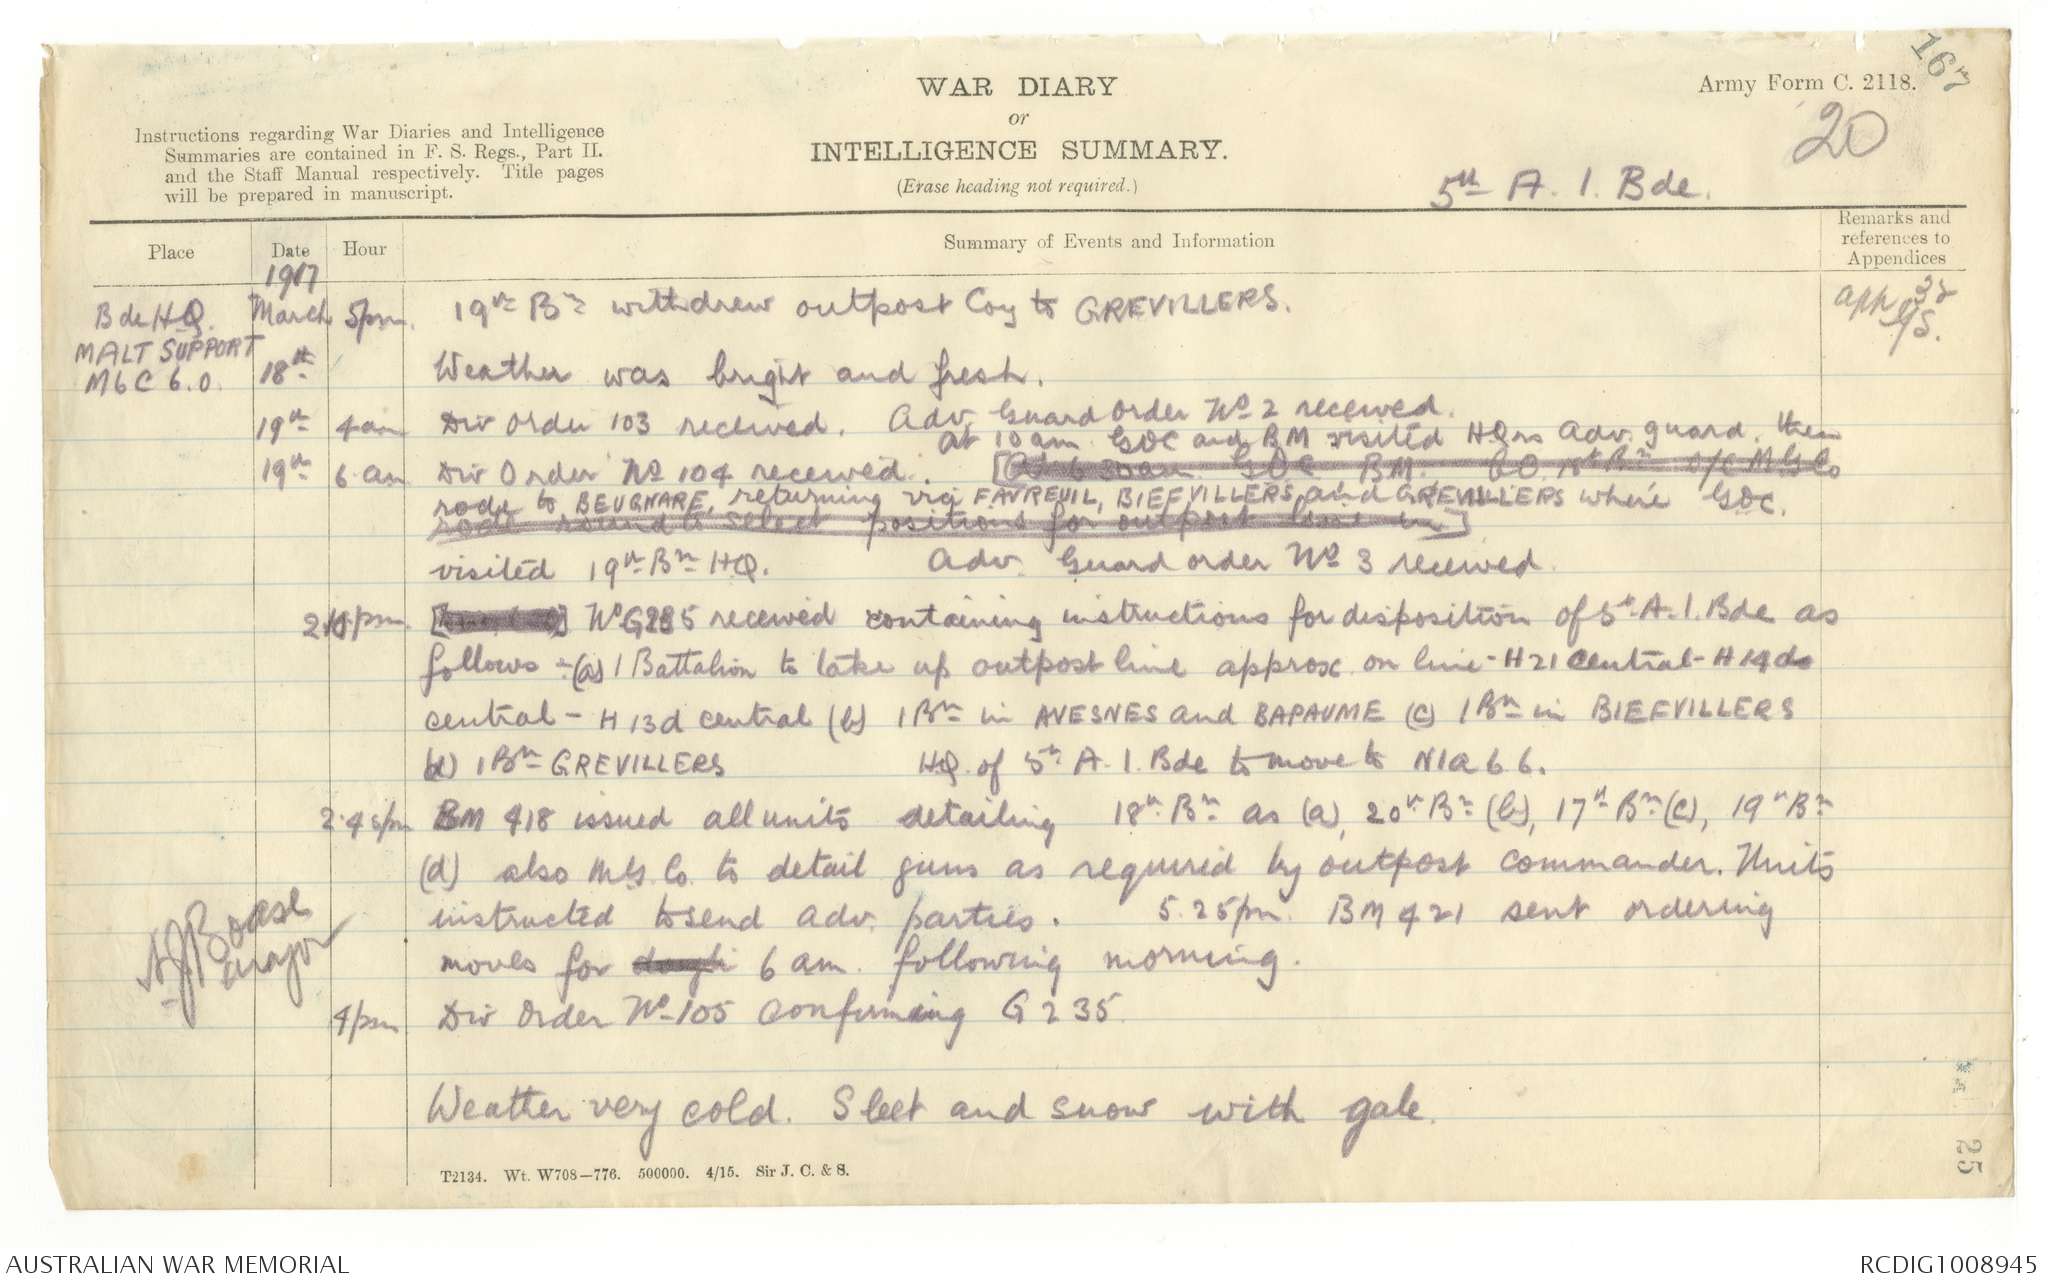 WAR DIARY
or
INTELLIGENCE SUMMARY.
(Erase heading not required.)
Army Form C. 2118.
167
20
Instructions regarding War Diaries and Intelligence
Summaries are contained in F. S. Regs., Part II.
and the Staff Manual respectively. Title pages
will be prepared in manuscript.
5th A. I. Bde.
Place
Date
Hour
Summary of Events and Information
Remarks and
references to
Appendices
1917
Bde HQ. March 5pm. 19th Bn withdrew outpost Coy to GREVILLERS.
app
MALT SUPPORT
M6C 6.0. 18th Weather was bright and fresh.
19th 4am Div Order 103 received. Adv. Guard Order No 2 received.
at 10am GOC and BM visited HQrs Adv. guard. then
19th 6am Div Order No 104 received. [At 6.30am GOC BM. CO 18th Bn O/C MG Co
rode to BEUGNARE, returning via FAVREUIL, BIEFVILLERS, and GREVILLERS where GOC.
rode round to select positions for outpost line in]
visited 19th Bn HQ. Adv. Guard order No 3 received.
pm. No G235 received containing instructions for disposition of 5th A.I. Bde as
follows :- (a) 1 Battalion to take up outpost line approx on line - H21 central - H14d
central - H13d central (b) 1 Bn in AVESNES and BAPAUME (c) 1 Bn in BIEFVILLERS
(d) 1 Bn GREVILLERS HQ. of 5th A. I. Bde to move to N1a 6 6.
2.45pm BM 418 issued all units detailing 18th Bn as (a), 20th Bn (b), 17th Bn (c), 19th Bn
(d) also M.G. Co. to detail guns as required by outpost commander. Units
instructed to send adv. parties. 5.25pm. BM 421 sent ordering
moves for 6 am. following morning.
AJ Boase
Major
4pm Div Order No 105 confirming G 235.
Weather very cold. Sleet and snow with gale.
T2134. Wt. W708—776. 500000. 4/15. Sir J. C. & S.
25
AUSTRALIAN WAR MEMORIAL
RCDIG1008945